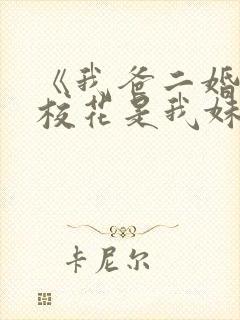 《我爸二婚
校花是我妹
卡尼尔